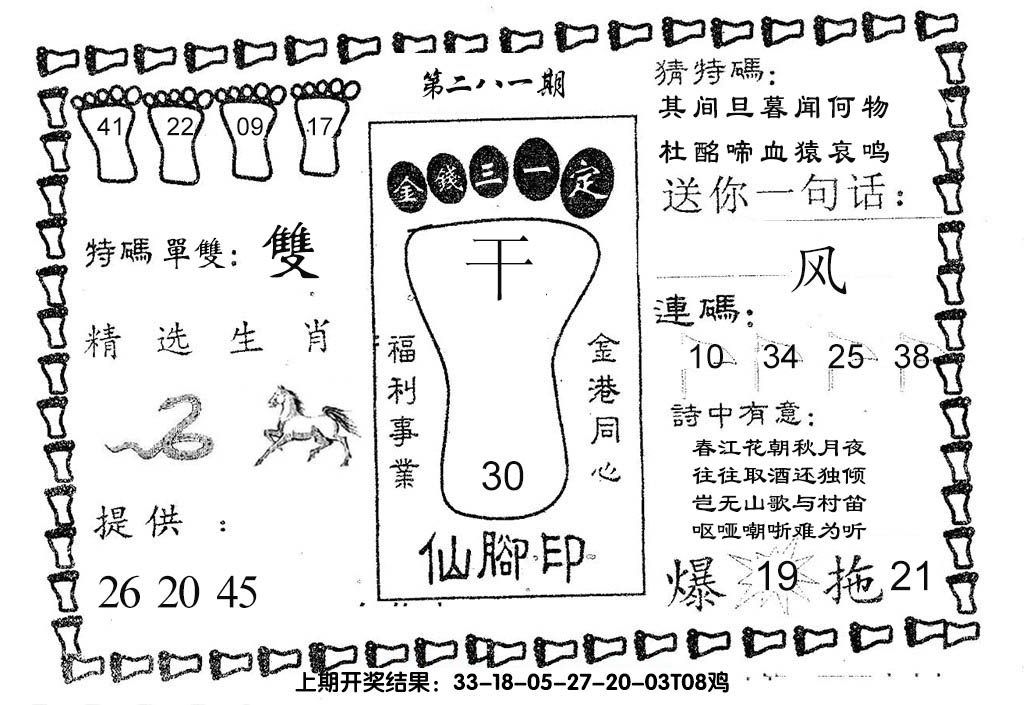 第二八一期
41 22 09 17
特碼單雙：雙
精选生肖
提供：
26 20 45
金錢三一定
干
福利事業
金港同心
30
仙腳印
猜特碼：
其间旦暮闻何物
杜酩啼血猿哀鸣
送你一句话：
风
連碼：
10 34 25 38
詩中有意：
春江花朝秋月夜
往往取酒还独倾
岂无山歌与村笛
呕哑嘲哳难为听
爆 19 拖 21
上期开奖结果：33-18-05-27-20-03T08鸡